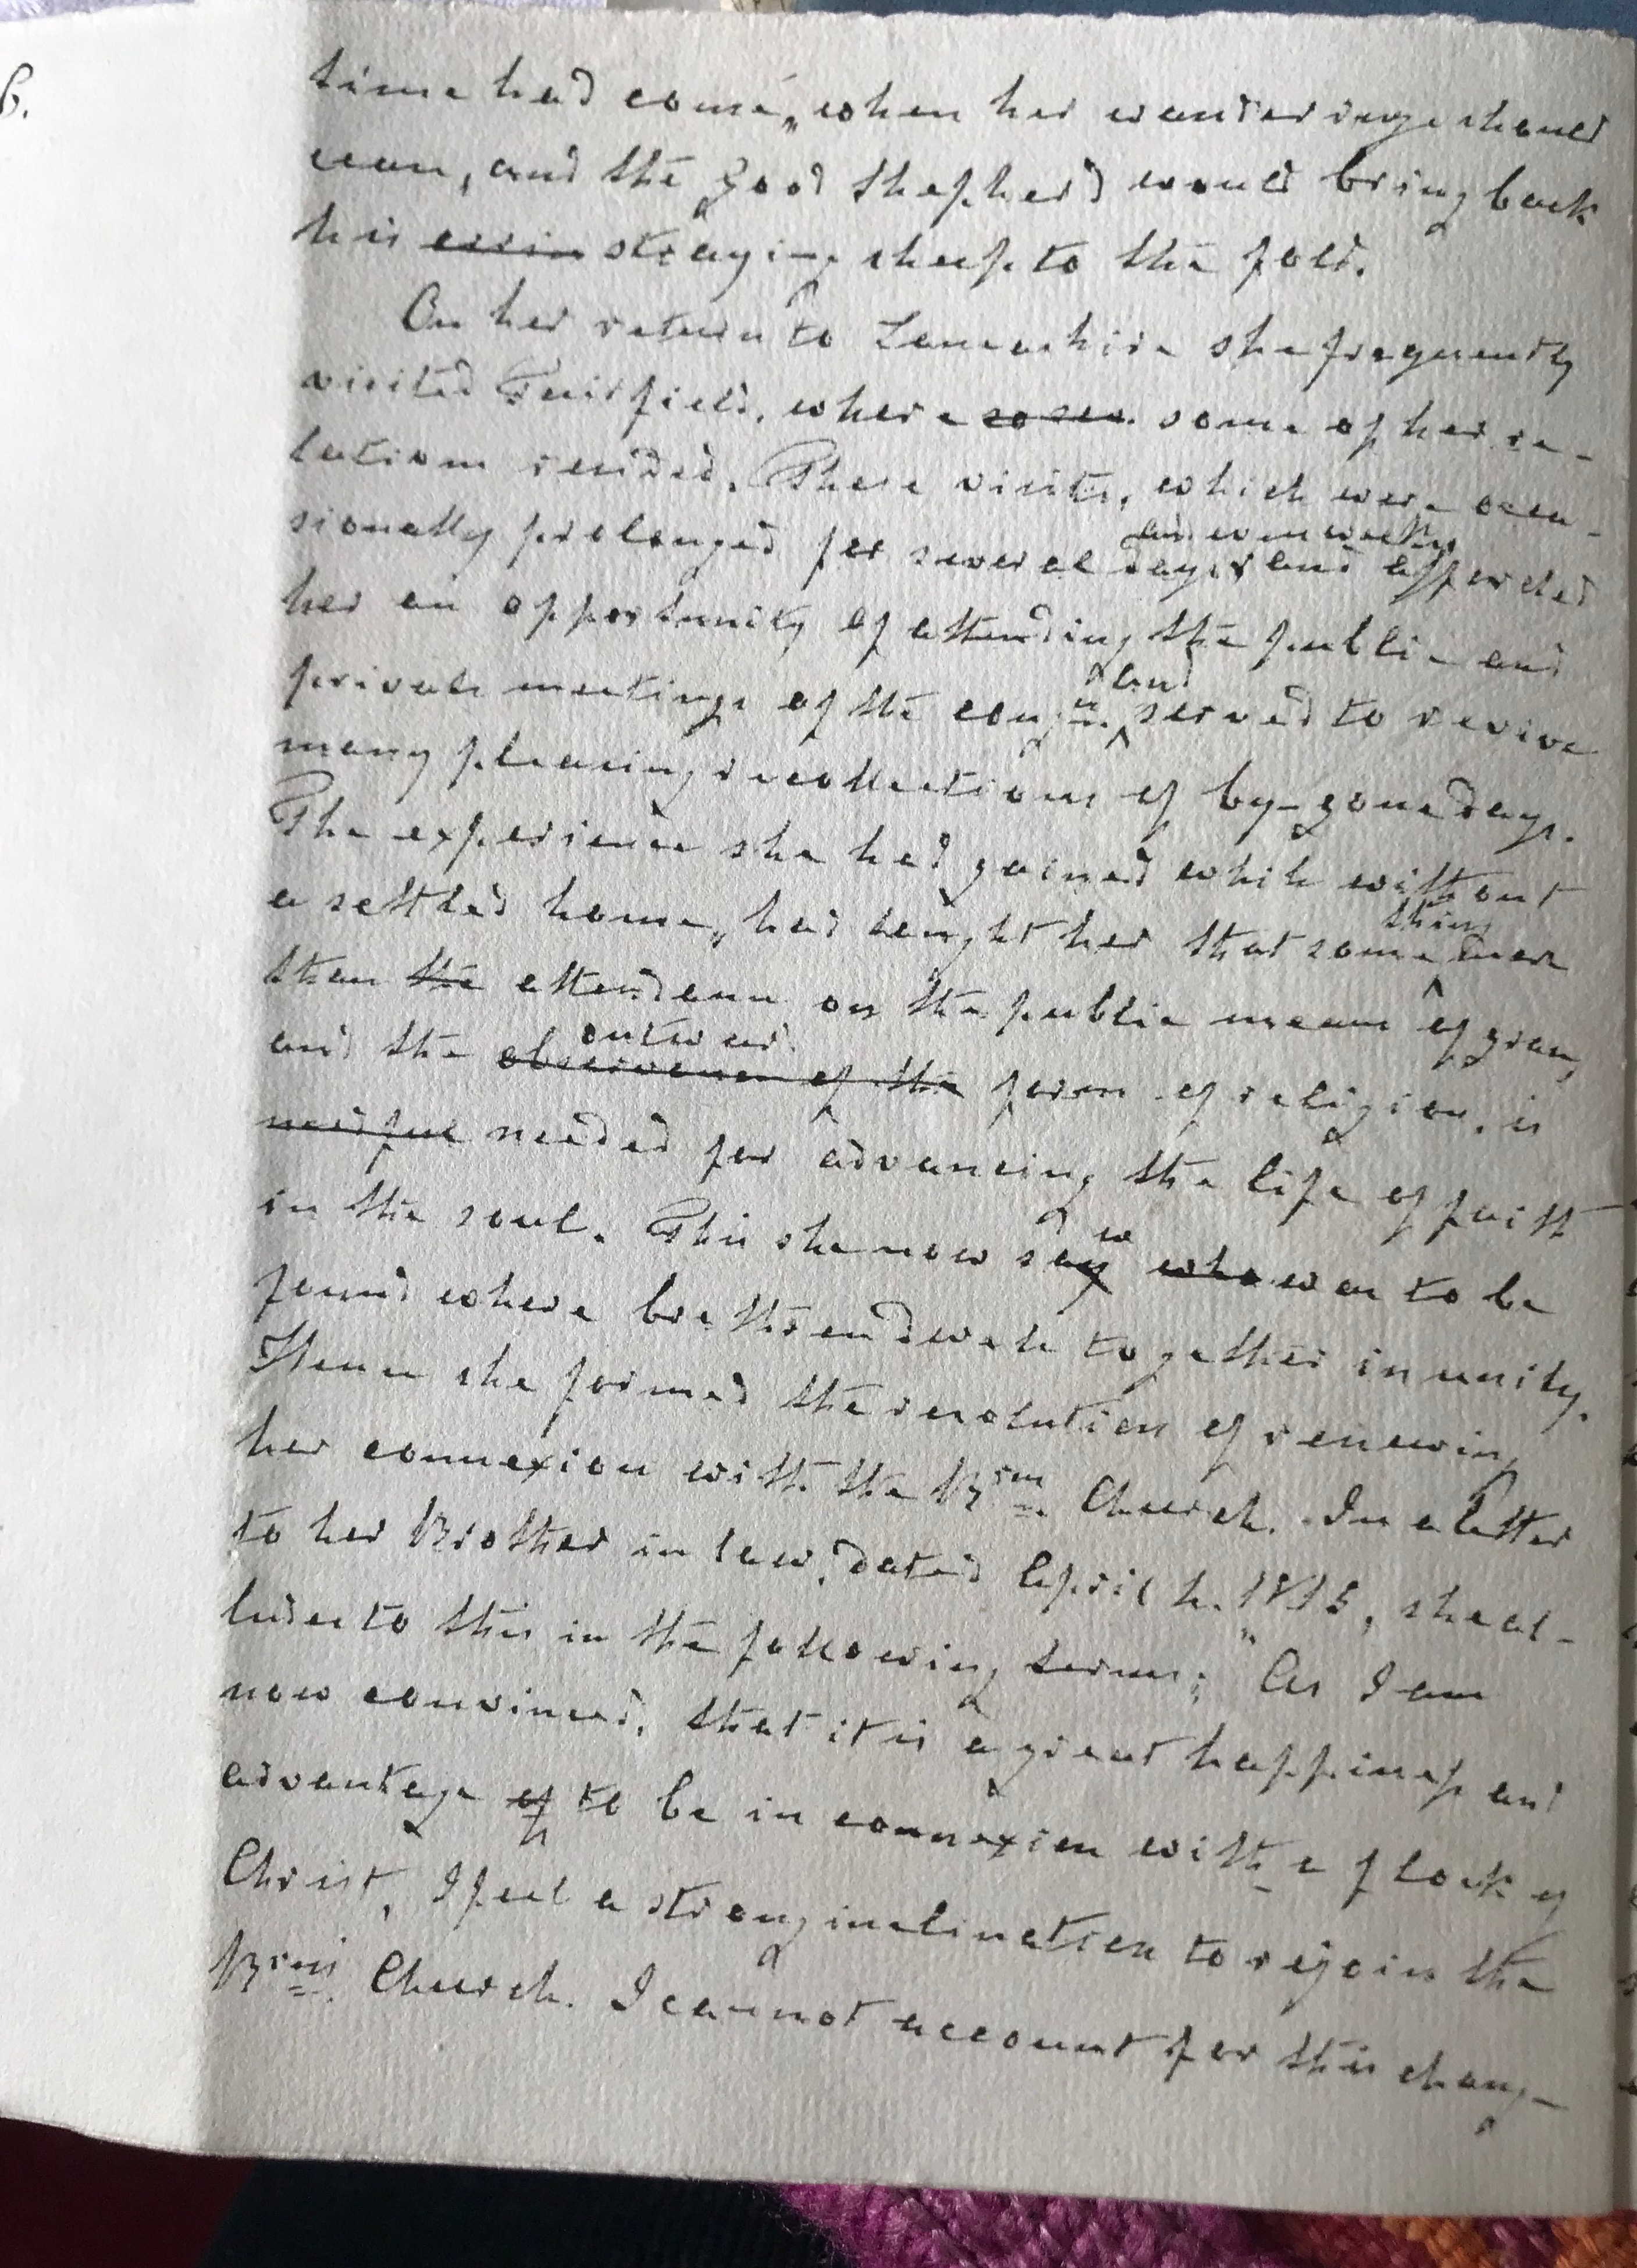 6.
time had come, when her wanderings should
cease, and the good Shepherd would bring back
his errin straying sheep to the fold.
On her return to Lancashire she frequently
visited Fairfield, where some of her re-
lations resided. These visits, which were occa-
sionally prolonged for several days and even weeks and afforded
her an opportunity of attending the public and
private meetings of the congn. and served to revive
many pleasing recollections of by-gone days.
The experience she had gained while without
a settled home, had taught her that something more
than the attendance on the public means of grace,
and the observance of the outward form of religion, is
needful needed for advancing the life of faith
in the soul. This she now saw who was to be
found where brethren dwell together in unity.
Hence she formed the resolution of renewing
her connexion with the Brns. Church. In a letter
to her Brother in law, dated April 1815, she al-
ludes to this in the following terms; "As I am
now convinced, that it is a great happiness and
advantage of to be in connexion with a flock of
Christ, I feel a strong inclination to rejoin the
Brns. Church. I cannot account for this change